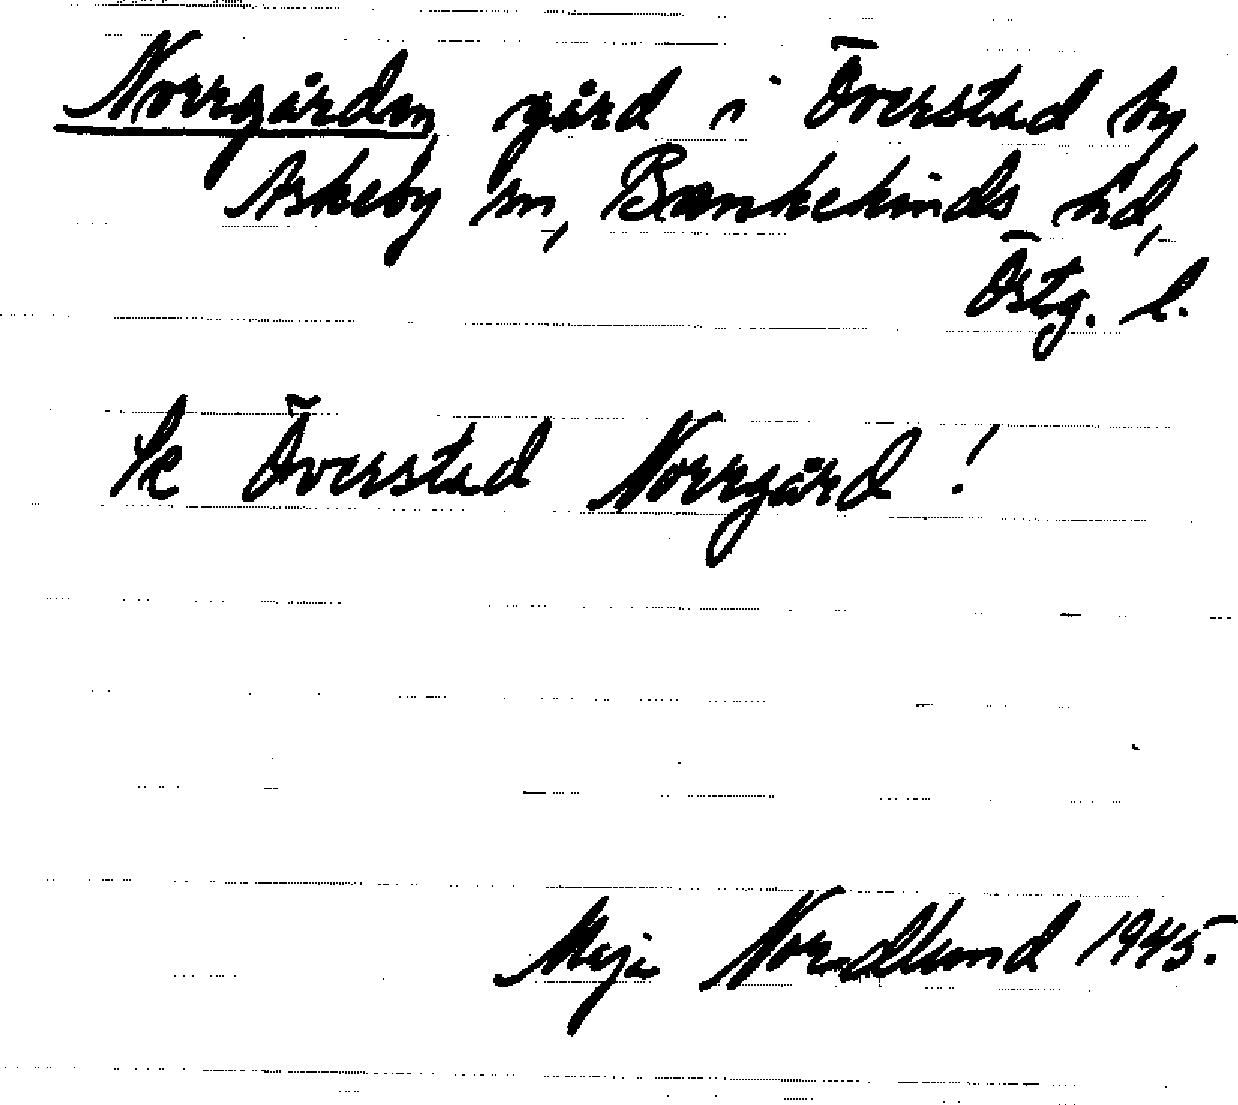 Norrgården, gård i Överstad by
Askeby sn, Bankekinds hd,
Östg. l.
Se Överstad Norrgård!
Maja Nordlund 1945.